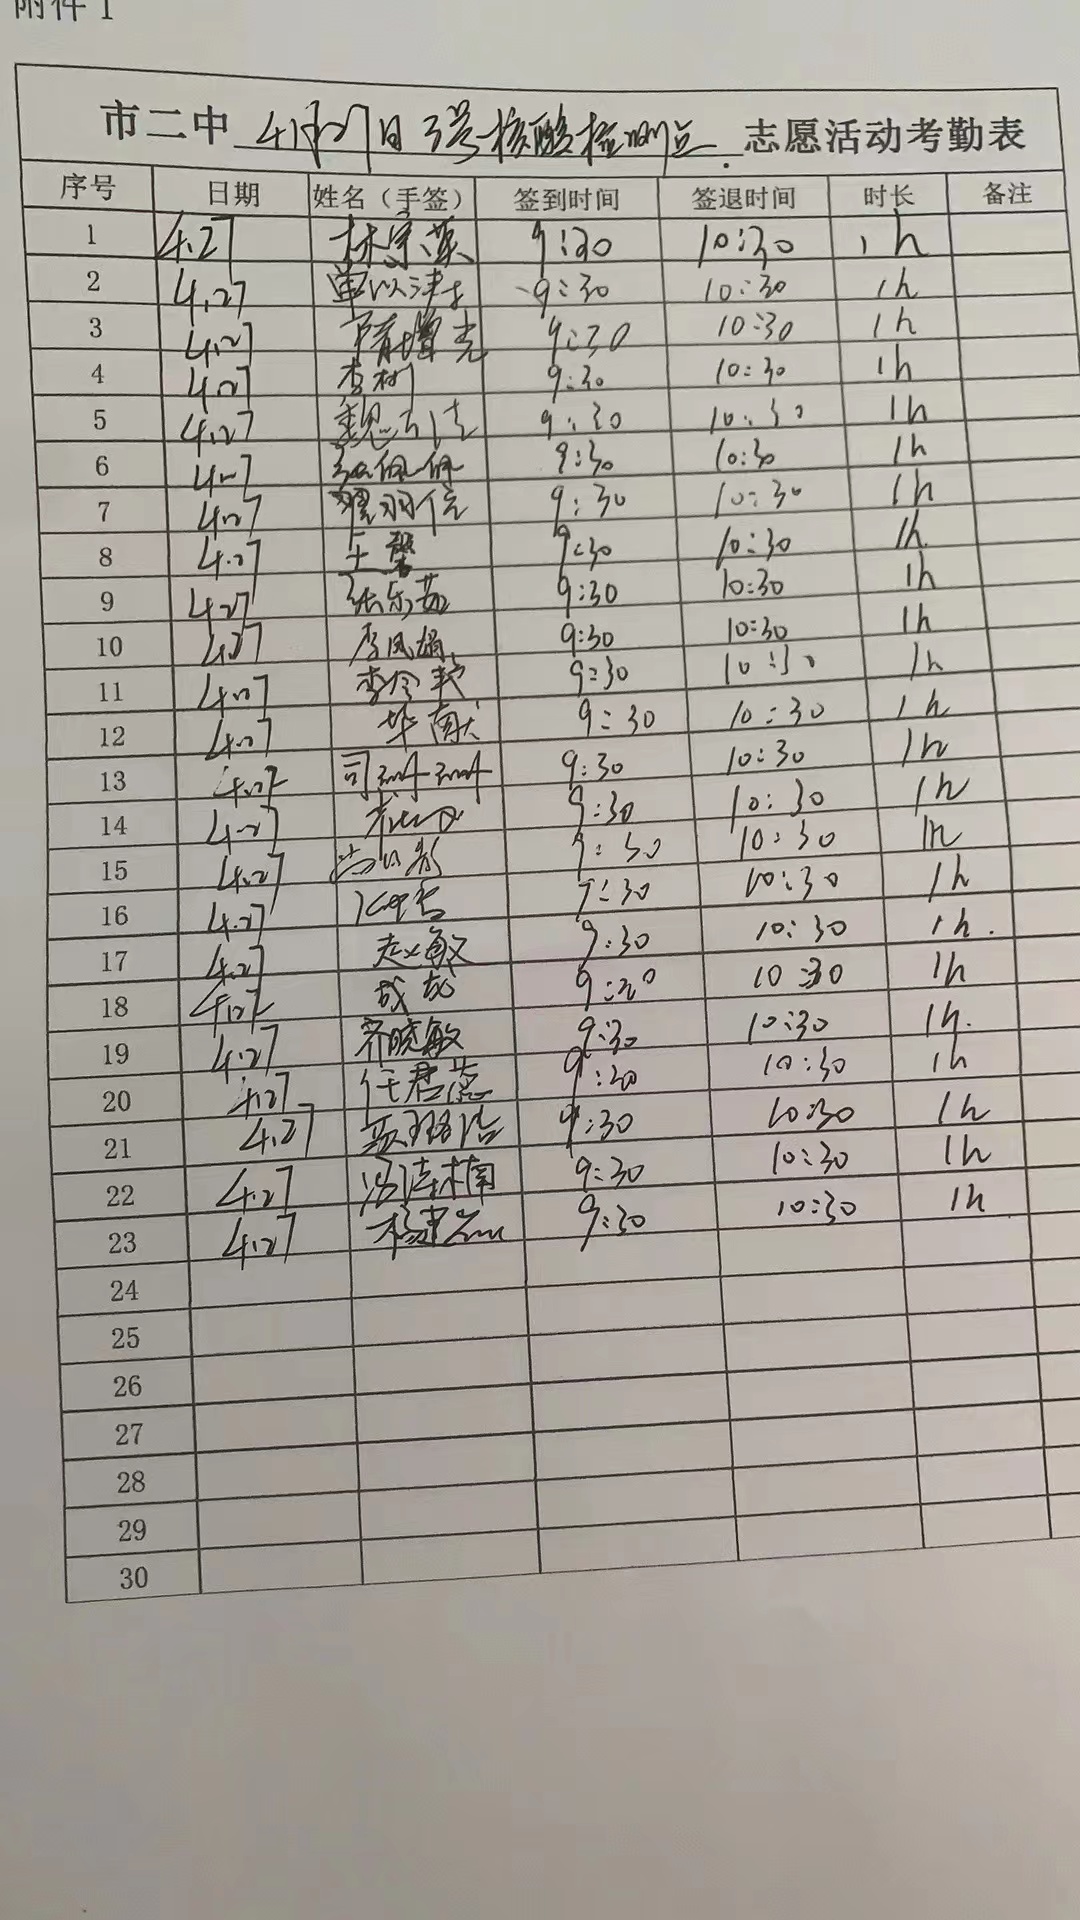 附件1
市二中4月27日3号核酸检测点志愿活动考勤表
序号 日期 姓名（手签） 签到时间 签退时间 时长 备注
1 4.27 林宗英 9:30 10:30 1h
2 4.27 9:30 10:30 1h
3 4.27 隋增光 9:30 10:30 1h
4 4.27 李树 9:30 10:30 1h
5 4.27 9:30 10:30 1h
6 4.27 张佩佩 9:30 10:30 1h
7 4.27 9:30 10:30 1h
8 4.27 王馨 9:30 10:30 1h
9 4.27 张乐茹 9:30 10:30 1h
10 4.27 李凤娟 9:30 10:30 1h
11 4.27 李令艳 9:30 10:30 1h
12 4.27 毕献 9:30 10:30 1h
13 4.27 司珊珊 9:30 10:30 1h
14 4.27 9:30 10:30 1h
15 4.27 9:30 10:30 1h
16 4.27 9:30 10:30 1h.
17 4.27 赵敏 9:30 10:30 1h
18 4.27 成龙 9:30 10:30 1h.
19 4.27 齐晓敏 9:30 10:30 1h
20 4.27 任君蕊 9:30 10:30 1h
21 4.27 9:30 10:30 1h
22 4.27 冯佳楠 9:30 10:30 1h
23 4.27 9:30
24
25
26
27
28
29
30